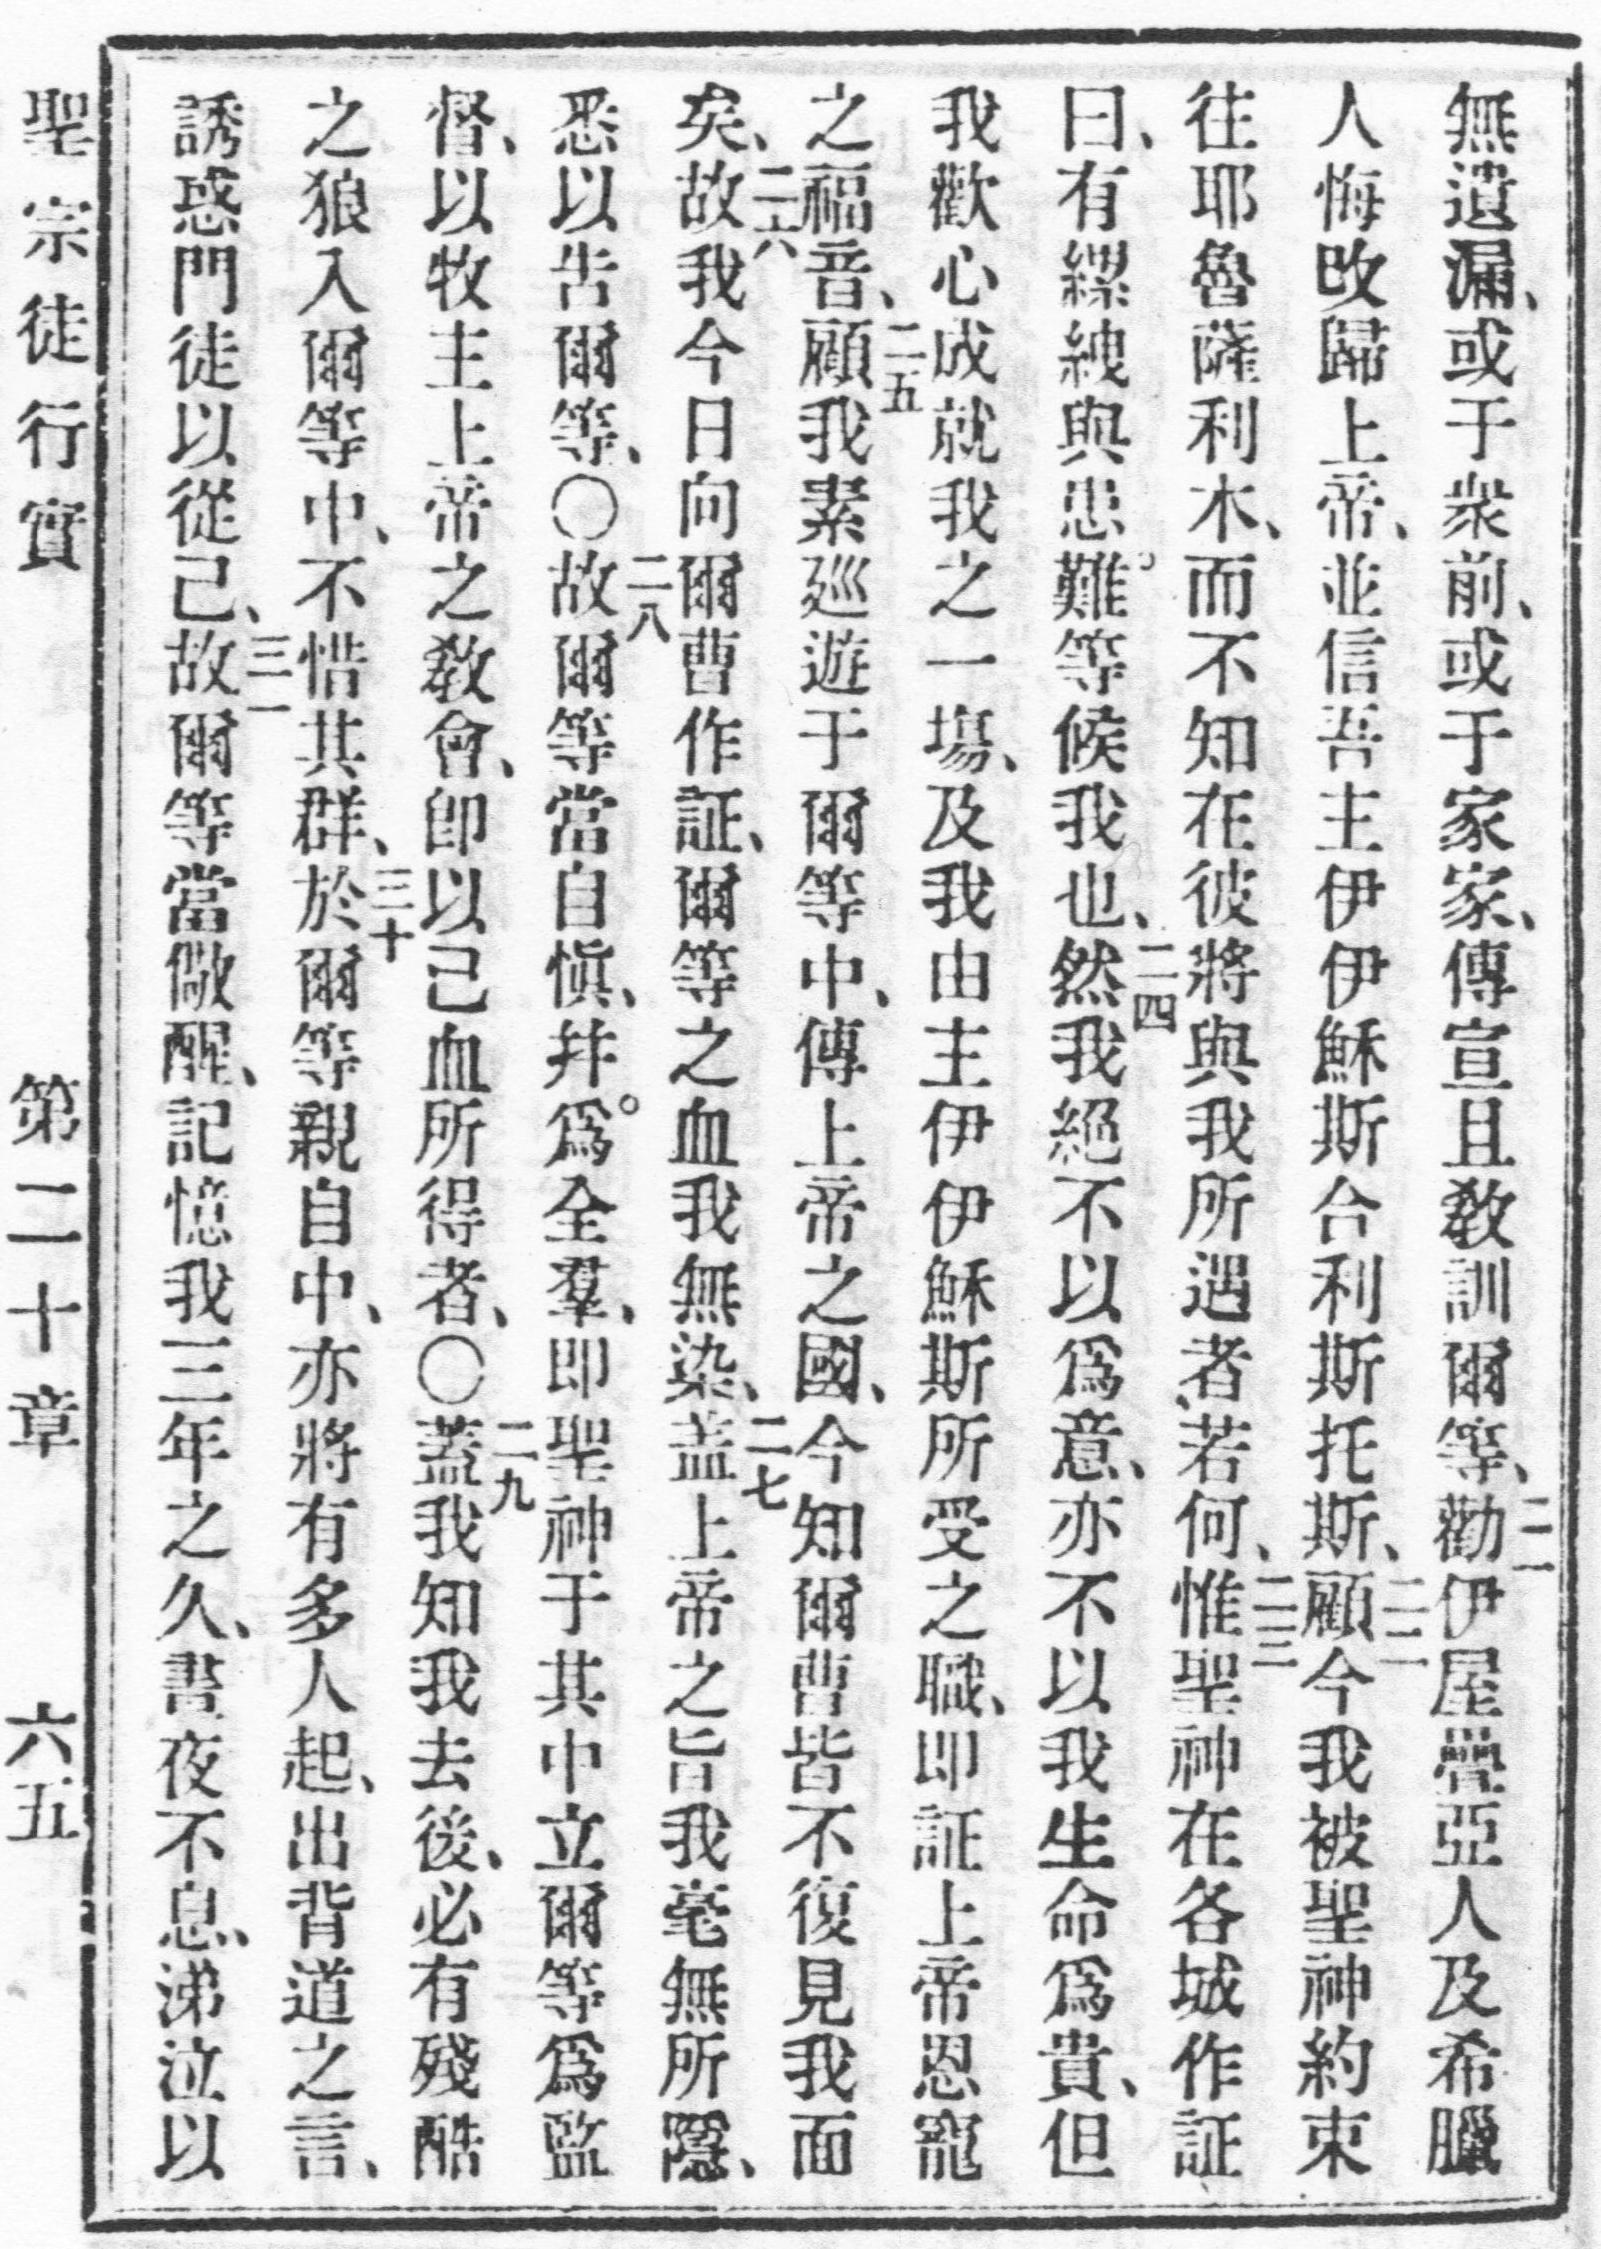 無遺漏、或于衆前、或于家家、傳宣且敎訓爾等、二一勸伊屋疊亞人及希臘
人悔改歸上帝、並信吾主伊伊穌斯合利斯托斯、二二顧今我被聖神約束
往耶魯薩利木、而不知在彼將與我所遇者、若何、二三惟聖神在各城作証
曰、有縲絏與患難。等候我也、二四然我絕不以爲意、亦不以我生命爲貴、但
我歡心成就我之一塲、及我由主伊伊穌斯所受之職、即証上帝恩寵
之福音、二五顧我素廵遊于爾等中、傳上帝之國、今知爾曹皆不復見我面
矣、二六故我今日向爾曹作証、爾等之血我無染、二七盖上帝之旨我毫無所隱、
悉以告爾等、〇二八故爾等當自愼、幷。爲全羣、即聖神于其中立爾等爲監
督、以牧主上帝之敎會、卽以己血所得者、〇二九蓋我知我去後、必有殘酷
之狼入爾等中、不惜其群、三十於爾等親自中、亦將有多人起、出背道之言、
誘惑門徒以從己、三一故爾等當儆醒、記憶我三年之久、晝夜不息、涕泣以
聖宗徒行實 第二十章 六五